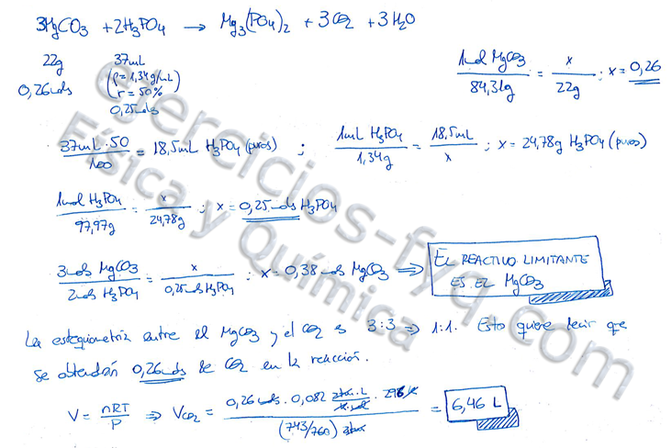 3MgCO3 + 2H3PO4 → Mg3(PO4)2 + 3CO2 + 3H2O
22g 37mL
0,26mols (ρ=1,34g/mL
r=50%)
0,25mols
1mol MgCO3/84,31g = x/22g ; x = 0,26
37mL·50/100 = 18,5mL H3PO4 (puros) ; 1mL H3PO4/1,34g = 18,5mL/x ; x = 24,78g H3PO4 (puros)
1mol H3PO4/97,97g = x/24,78g ; x = 0,25mols H3PO4
3mols MgCO3/2mols H3PO4 = x/0,25mols H3PO4 ; x = 0,38mols MgCO3 ⇒ EL REACTIVO LIMITANTE
ES EL MgCO3
La estequiometría entre el MgCO3 y el CO2 es 3:3 ⇒ 1:1. Esto quiere decir que
se obtendrán 0,26mols de CO2 en la reacción.
V = nRT/P ⇒ VCO2 = 0,26mols · 0,082 atm·L/K·mol · 298K/(743/760) atm = 6,46 L
ejercicios-fyq.com
Física y Química